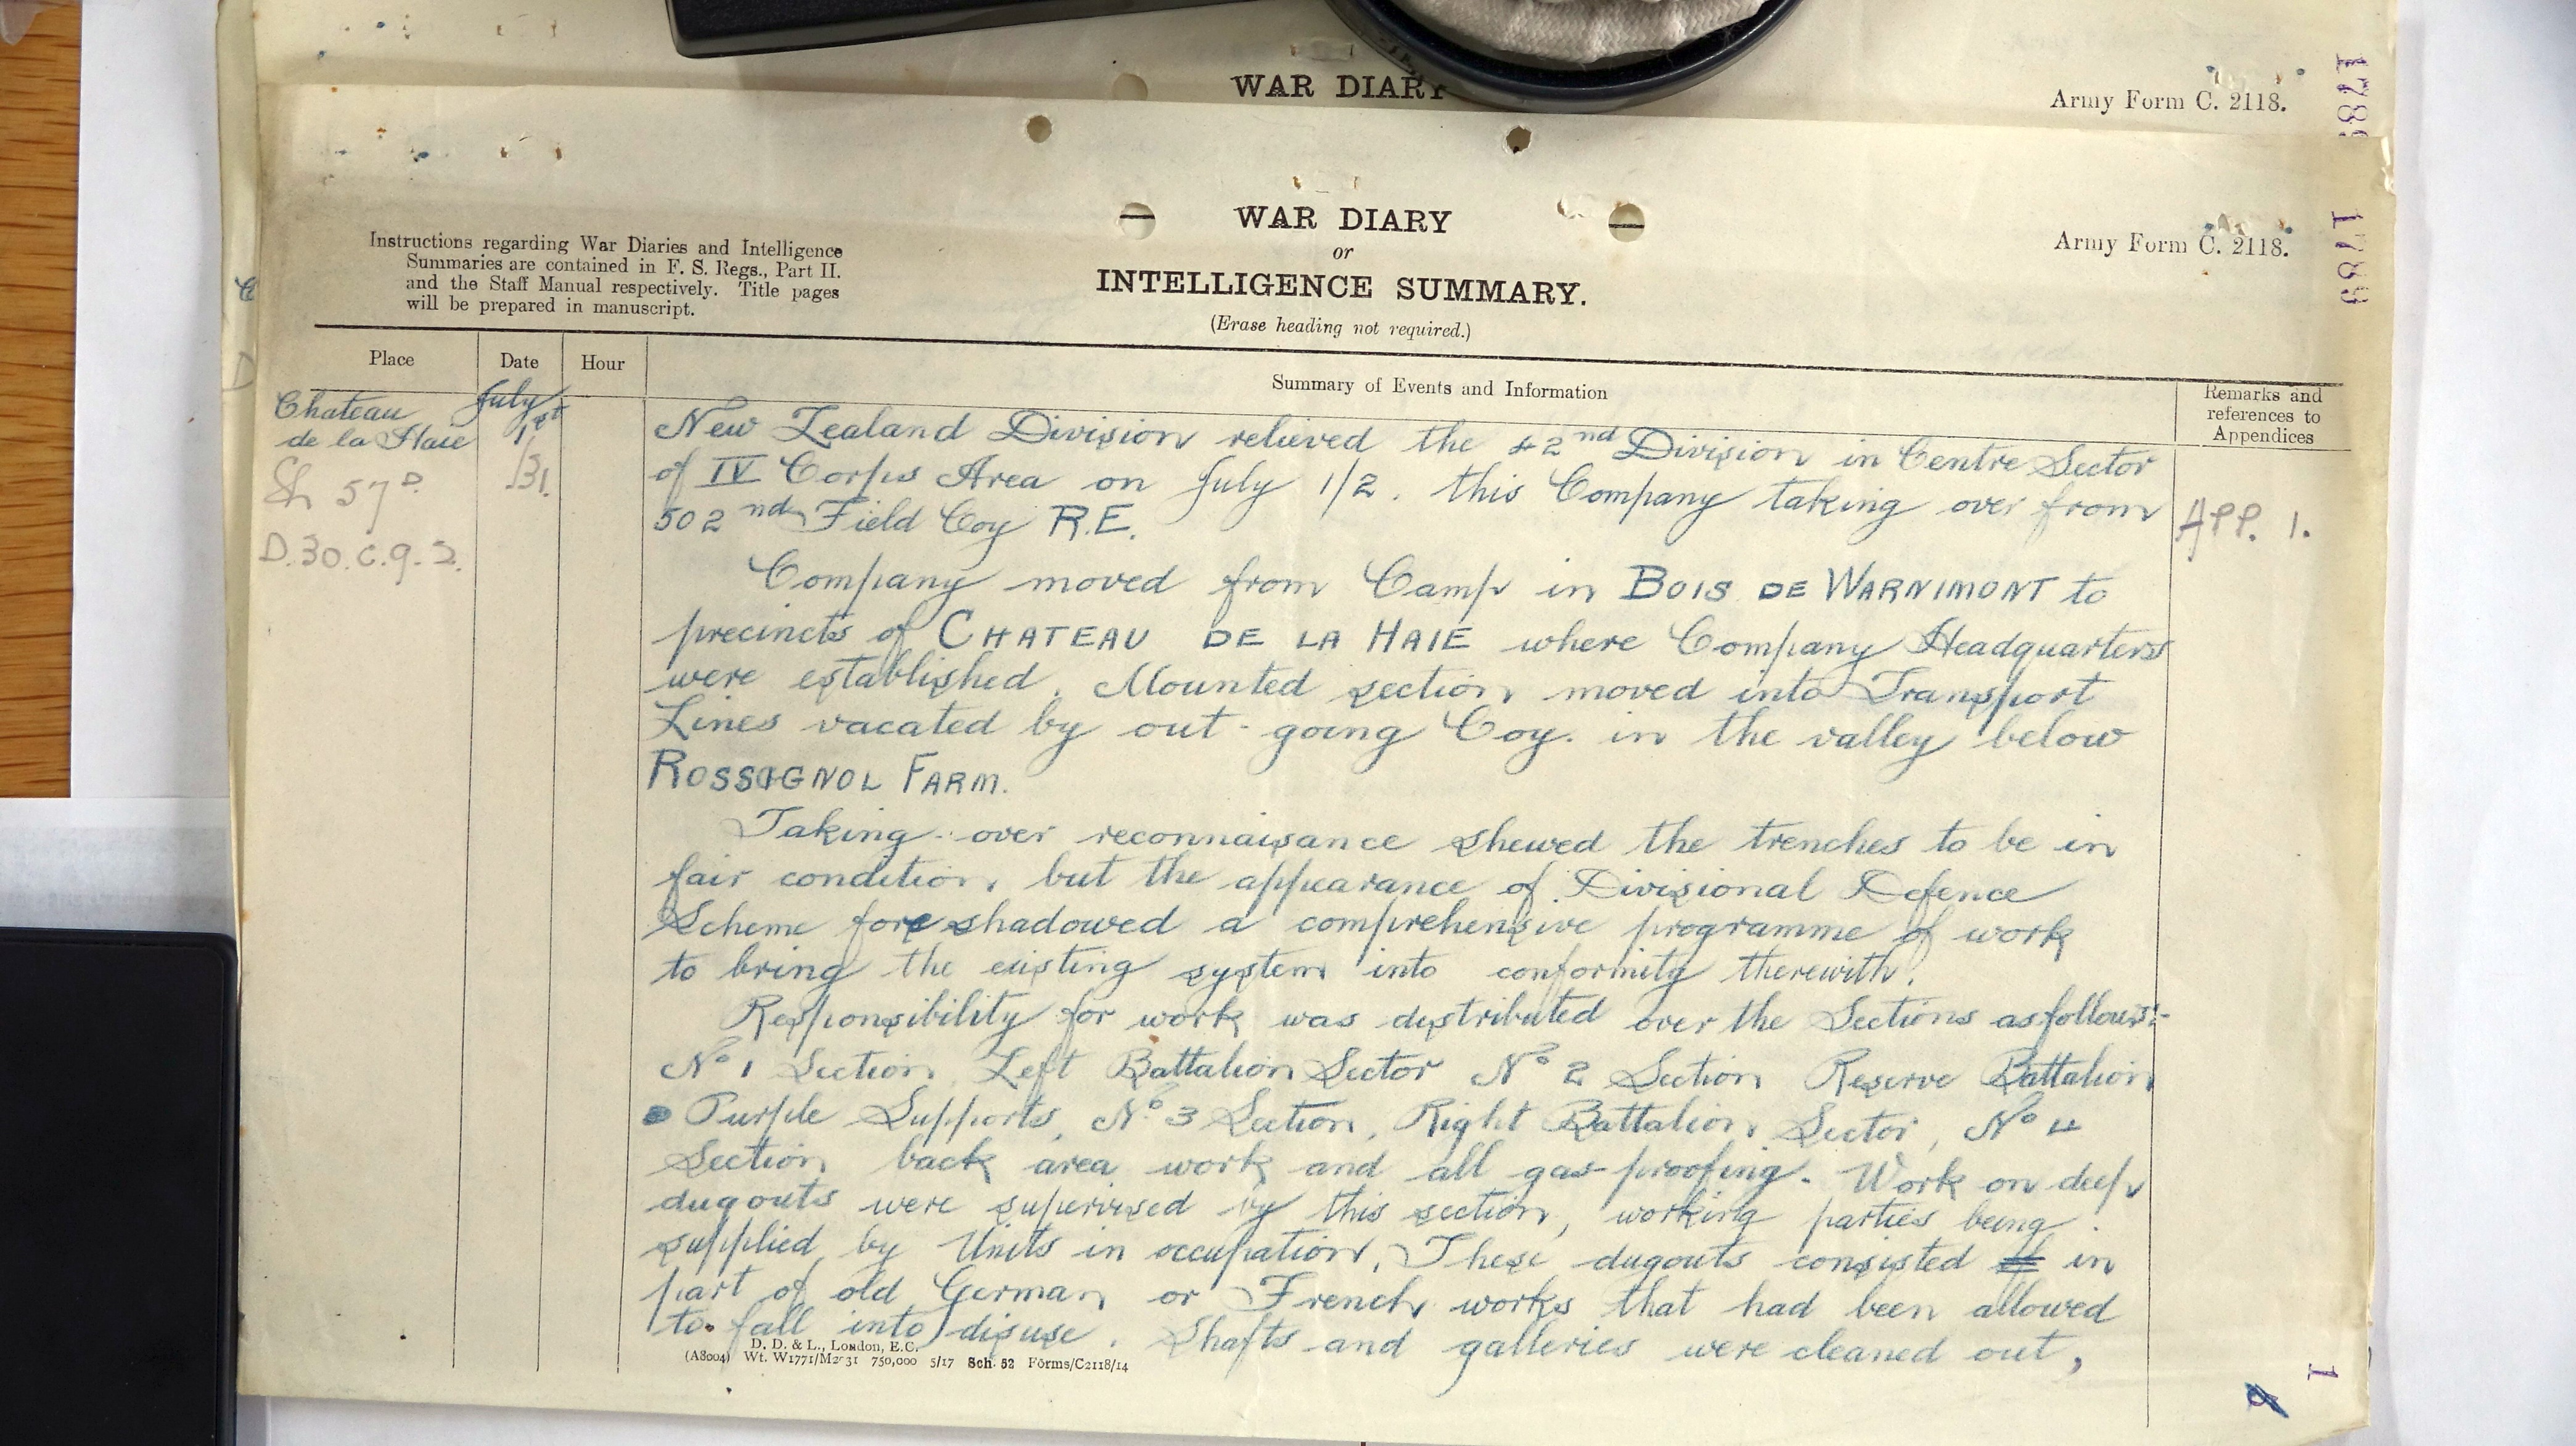 WAR DIARY
Army Form C. 2118.
WAR DIARY
or
INTELLIGENCE SUMMARY.
(Erase heading not required.)
Army Form C. 2118.
Instructions regarding War Diaries and Intelligence
Summaries are contained in F. S. Regs., Part II.
and the Staff Manual respectively. Title pages
will be prepared in manuscript.
Place
Date
Hour
Summary of Events and Information
Remarks and
references to
Appendices
Chateau
de la Haie
Sh 57 D.
D.30.c.9.2.
July
1st
/31.
New Zealand Division relieved the 42nd Division in Centre Sector
of IV Corps Area on July 1/2. this Company taking over from
502nd Field Coy R.E.
APP. 1.
Company moved from Camp in BOIS DE WARNIMONT to
precincts of CHATEAU DE LA HAIE where Company Headquarters
were established. Mounted section moved into Transport
Lines vacated by out-going Coy. in the valley below
ROSSIGNOL FARM.
Taking-over reconnaisance shewed the trenches to be in
fair condition, but the appearance of Divisional Defence
Scheme foreshadowed a comprehensive programme of work
to bring the existing system into conformity therewith.
Responsibility for work was distributed over the Sections as follows:-
No 1 Section, Left Battalion Sector No 2 Section Reserve Battalion
Purple Supports, No 3 Section, Right Battalion Sector, No 4
Section back area work and all gas-proofing. Work on deep
dugouts were supervised by this section, working parties being
supplied by Units in occupation. These dugouts consisted in
part of old German or French works that had been allowed
to fall into disuse. Shafts and galleries were cleaned out,
D. D. & L., London, E.C.
(A8004) Wt. W1771/M2031 750,000 5/17 Sch. 52 Forms/C2118/14
1